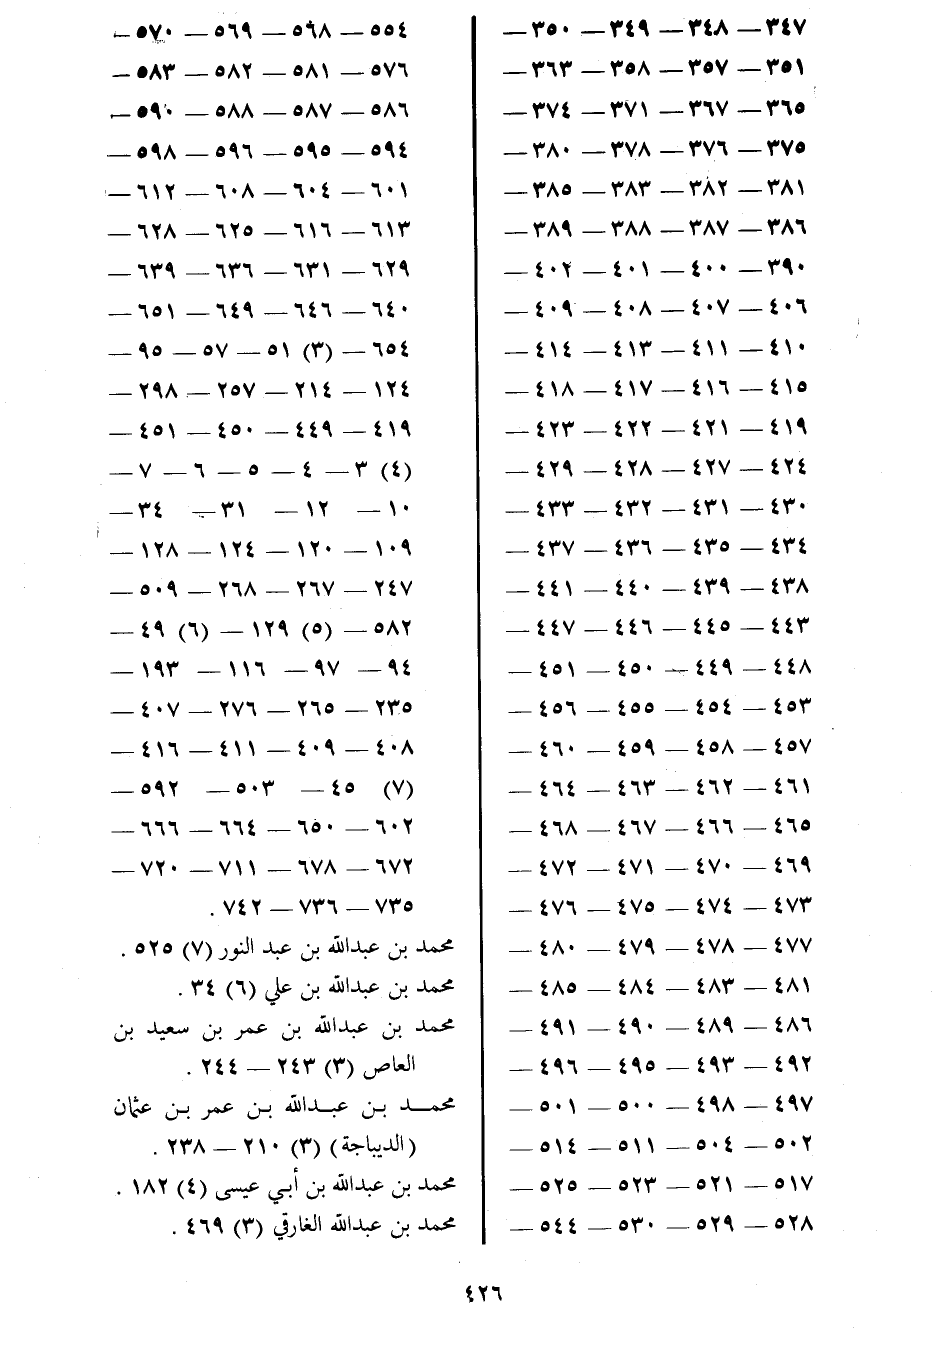 ٣٤٧ — ٣٤٨ — ٣٤٩ — ٣٥٠ —
٣٥١ — ٣٥٧ — ٣٥٨ — ٣٦٣ —
٣٦٥ — ٣٦٧ — ٣٧١ — ٣٧٤ —
٣٧٥ — ٣٧٦ — ٣٧٨ — ٣٨٠ —
٣٨١ — ٣٨٢ — ٣٨٣ — ٣٨٥ —
٣٨٦ — ٣٨٧ — ٣٨٨ — ٣٨٩ —
٣٩٠ — ٤٠٠ — ٤٠١ — ٤٠٢ —
٤٠٦ — ٤٠٧ — ٤٠٨ — ٤٠٩ —
٤١٠ — ٤١١ — ٤١٣ — ٤١٤ —
٤١٥ — ٤١٦ — ٤١٧ — ٤١٨ —
٤١٩ — ٤٢١ — ٤٢٢ — ٤٢٣ —
٤٢٤ — ٤٢٧ — ٤٢٨ — ٤٢٩ —
٤٣٠ — ٤٣١ — ٤٣٢ — ٤٣٣ —
٤٣٤ — ٤٣٥ — ٤٣٦ — ٤٣٧ —
٤٣٨ — ٤٣٩ — ٤٤٠ — ٤٤١ —
٤٤٣ — ٤٤٥ — ٤٤٦ — ٤٤٧ —
٤٤٨ — ٤٤٩ — ٤٥٠ — ٤٥١ —
٤٥٣ — ٤٥٤ — ٤٥٥ — ٤٥٦ —
٤٥٧ — ٤٥٨ — ٤٥٩ — ٤٦٠ —
٤٦١ — ٤٦٢ — ٤٦٣ — ٤٦٤ —
٤٦٥ — ٤٦٦ — ٤٦٧ — ٤٦٨ —
٤٦٩ — ٤٧٠ — ٤٧١ — ٤٧٢ —
٤٧٣ — ٤٧٤ — ٤٧٥ — ٤٧٦ —
٤٧٧ — ٤٧٨ — ٤٧٩ — ٤٨٠ —
٤٨١ — ٤٨٣ — ٤٨٤ — ٤٨٥ —
٤٨٦ — ٤٨٩ — ٤٩٠ — ٤٩١ —
٤٩٢ — ٤٩٣ — ٤٩٥ — ٤٩٦ —
٤٩٧ — ٤٩٨ — ٥٠٠ — ٥٠١ —
٥٠٢ — ٥٠٤ — ٥١١ — ٥١٤ —
٥١٧ — ٥٢١ — ٥٢٣ — ٥٢٥ —
٥٢٨ — ٥٢٩ — ٥٣٠ — ٥٤٤ —
٥٥٤ — ٥٦٨ — ٥٦٩ — ٥٧٠ —
٥٧٦ — ٥٨١ — ٥٨٢ — ٥٨٣ —
٥٨٦ — ٥٨٧ — ٥٨٨ — ٥٩٠ —
٥٩٤ — ٥٩٥ — ٥٩٦ — ٥٩٨ —
٦٠١ — ٦٠٤ — ٦٠٨ — ٦١٢ —
٦١٣ — ٦١٦ — ٦٢٥ — ٦٢٨ —
٦٢٩ — ٦٣١ — ٦٣٦ — ٦٣٩ —
٦٤٠ — ٦٤٦ — ٦٤٩ — ٦٥١ —
٦٥٤ — (٣) ٥١ — ٥٧ — ٩٥ —
١٢٤ — ٢١٤ — ٢٥٧ — ٢٩٨ —
٤١٩ — ٤٤٩ — ٤٥٠ — ٤٥١ —
(٤) ٣ — ٤ — ٥ — ٦ — ٧ —
١٠ — ١٢ — ٣١ — ٣٤ —
١٠٩ — ١٢٠ — ١٢٤ — ١٢٨ —
٢٤٧ — ٢٦٧ — ٢٦٨ — ٥٠٩ —
٥٨٢ — (٥) ١٢٩ — (٦) ٤٩ —
٩٤ — ٩٧ — ١١٦ — ١٩٣ —
٢٣٥ — ٢٦٥ — ٢٧٦ — ٤٠٧ —
٤٠٨ — ٤٠٩ — ٤١١ — ٤١٦ —
(٧) ٤٥ — ٥٠٣ — ٥٩٢ —
٦٠٢ — ٦٥٠ — ٦٦٤ — ٦٦٦ —
٦٧٢ — ٦٧٨ — ٧١١ — ٧٢٠ —
٧٣٥ — ٧٣٦ — ٧٤٢ .
محمد بن عبدالله بن عبد النور (٧) ٥٢٥ .
محمد بن عبدالله بن علي (٦) ٣٤ .
محمد بن عبدالله بن عمر بن سعيد بن
العاص (٣) ٢٤٣ — ٢٤٤ .
محمد بن عبدالله بن عمر بن عثمان
(الديباجة) (٣) ٢١٠ — ٢٣٨ .
محمد بن عبدالله بن أبي عيسى (٤) ١٨٢ .
محمد بن عبدالله الغارقي (٣) ٤٦٩ .
٤٢٦